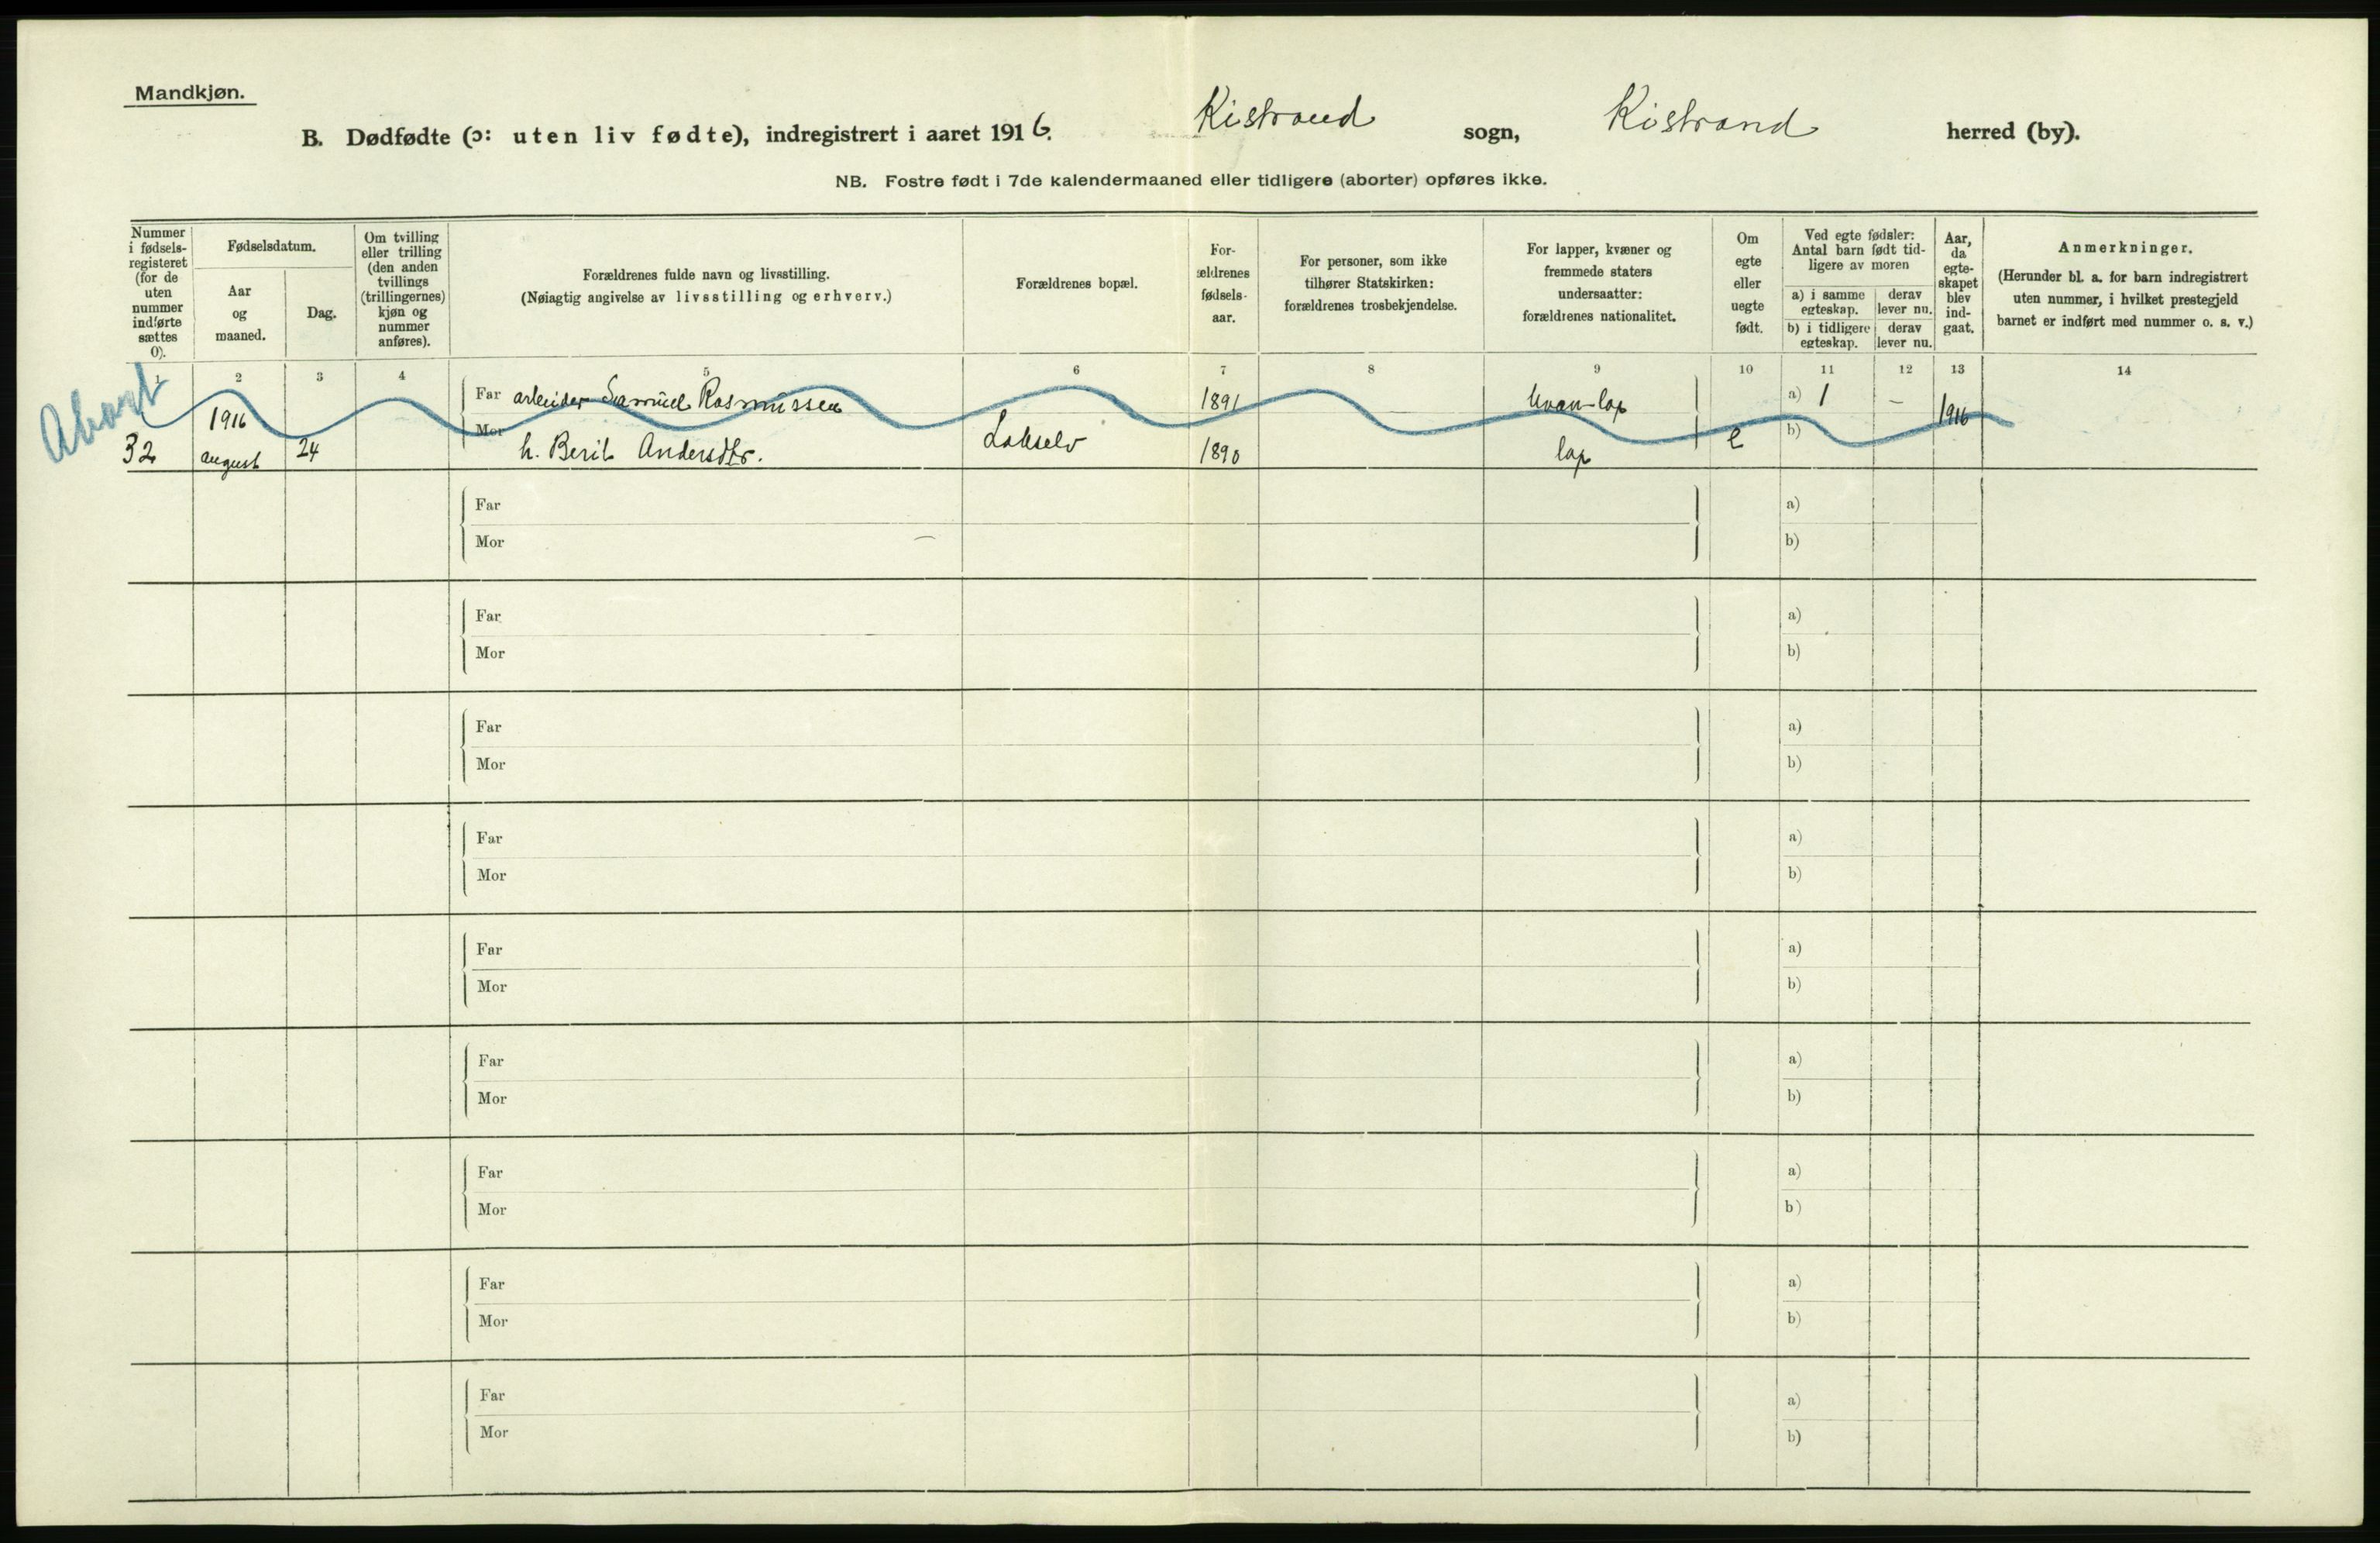 Mandkjøn.
B. Dødfødte (ɔ: uten liv fødte), indregistrert i aaret 1916. Kistrand sogn, Kistrand herred (by).
NB. Fostre født i 7de kalendermaaned eller tidligere (aborter) opføres ikke.
Nummer i fødsels-registeret (for de uten nummer indførte sættes 0).
Fødselsdatum.
Aar og maaned.
Dag.
Om tvilling eller trilling (den anden tvillings (trillingernes) kjøn og nummer anføres).
Forældrenes fulde navn og livsstilling.
(Nøiagtig angivelse av livsstilling og erhverv.)
Forældrenes bopæl.
For-ældrenes fødsels-aar.
For personer, som ikke tilhører Statskirken: forældrenes trosbekjendelse.
For lapper, kvæner og fremmede staters undersaatter: forældrenes nationalitet.
Om egte eller uegte født.
Ved egte fødsler: Antal barn født tid-ligere av moren
a) i samme egteskap.
derav lever nu.
b) i tidligere egteskap.
derav lever nu.
Aar, da egte-skapet blev ind-gaat.
Anmerkninger.
(Herunder bl. a. for barn indregistrert uten nummer, i hvilket prestegjeld barnet er indført med nummer o. s. v.)
1 2 3 4 5 6 7 8 9 10 11 12 13 14
Abort
Far arbeider Samuel Rasmussen 1891 — kvæn-lap a) 1 –
32 1916 august 24 Mor h. Berit Andersdtr. Lakselv 1890 lap e b) 1916
Far a)
Mor b)
Far a)
Mor b)
Far a)
Mor b)
Far a)
Mor b)
Far a)
Mor b)
Far a)
Mor b)
Far a)
Mor b)
Far a)
Mor b)
Far a)
Mor b)